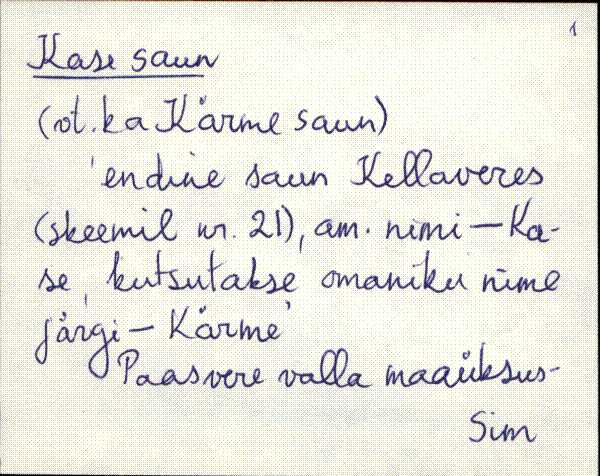 1
Kase saun
(vt. ka Kärme saun)
'endine saun Kellaveres
(skeemil nr. 21), am. nimi – Ka-
se, kutsutakse omaniku nime
järgi – Kärme'
Paasvere valla maaüksus-
Sim